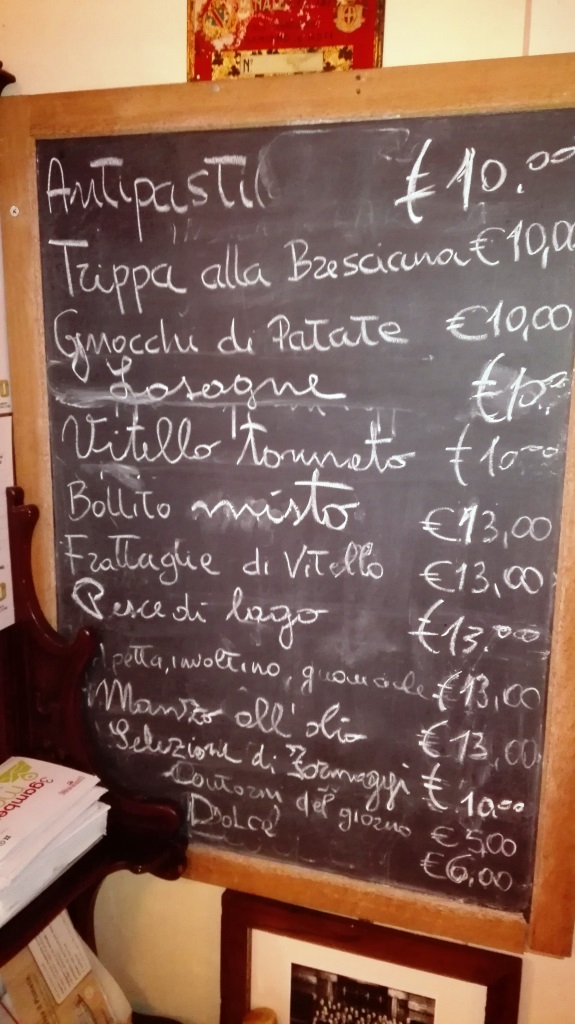 N°
Antipasti €10.00
Trippa alla Bresciana €10,00
Gnocchi di Patate €10,00
Losagne €10.00
Vitello tonnato €10.00
Bollito misto €13,00
Frattaglie di Vitello €13,00
Pesce di lago €13.00
petta, involtino, guanciale €13,00
Manzo all'olio €13,00
Selezione di Formaggi €10.00
Contorni del giorno €5,00
Dolce €6,00
3gambe